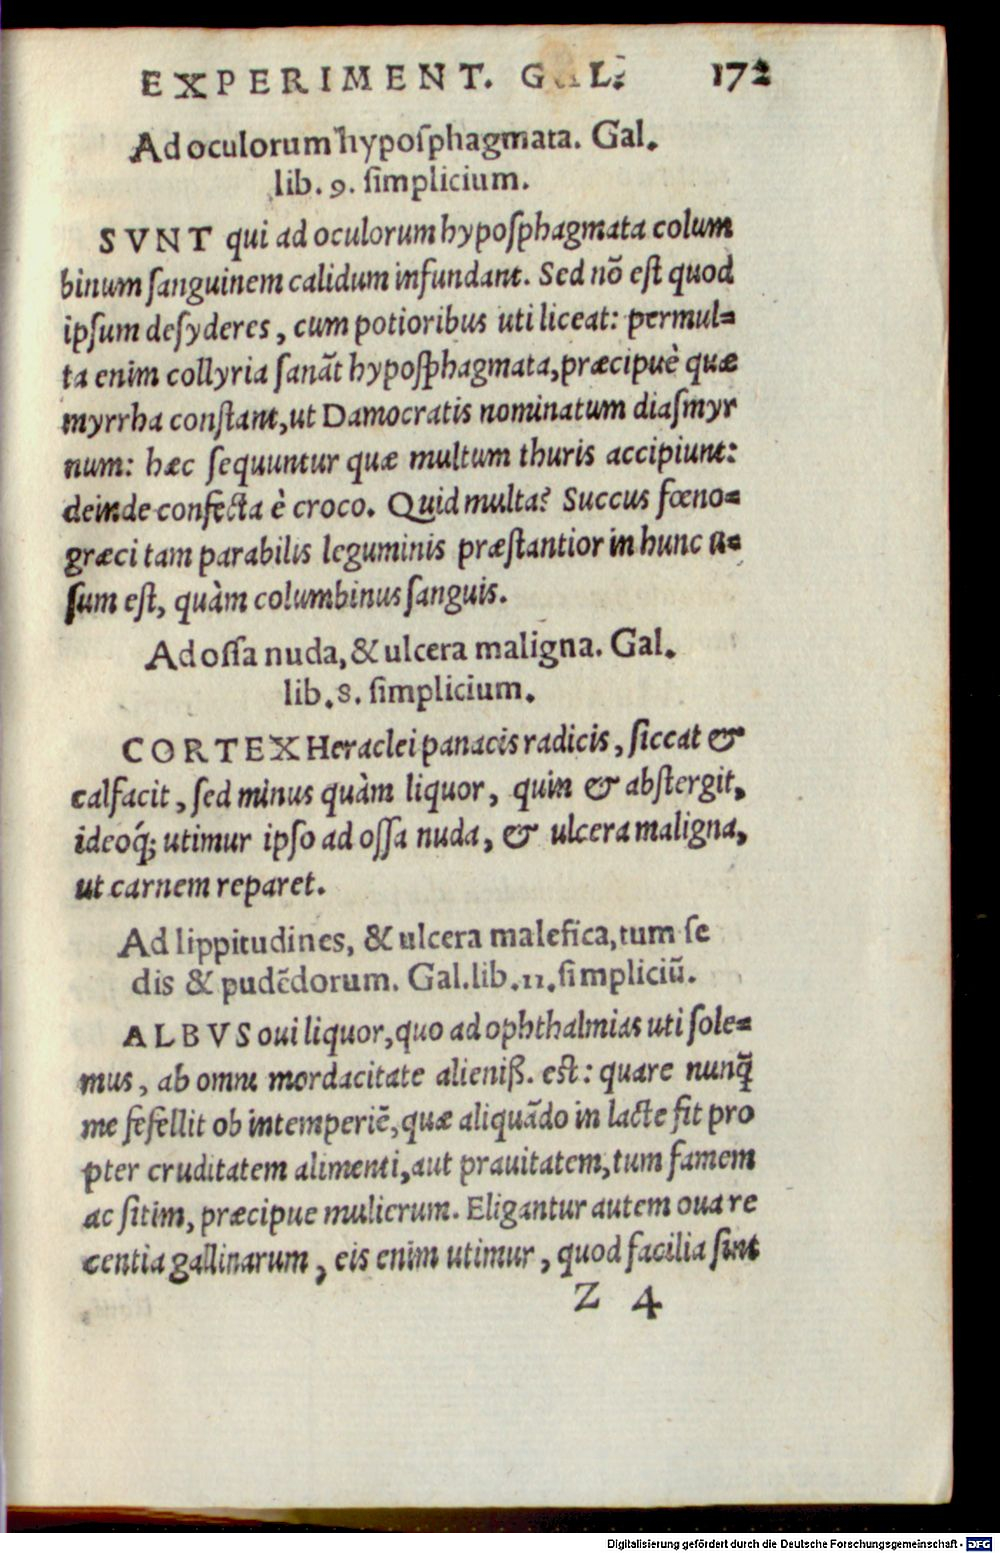 EXPERIMENT. GAL. 172
Ad oculorum hyposphagmata. Gal.
lib. 9. simplicium.
SVNT qui ad oculorum hyposphagmata colum
binum sanguinem calidum infundant. Sed nõ est quod
ipsum desyderes, cum potioribus uti liceat: permul=
ta enim collyria sanãt hyposphagmata, præcipuè quæ
myrrha constant, ut Damocratis nominatum diasmyr
num: hæc sequuntur quæ multum thuris accipiunt:
deinde confecta è croco. Quid multa? Succus fœno=
græci tam parabilis leguminis præstantior in hunc u=
sum est, quàm columbinus sanguis.
Ad ossa nuda, & ulcera maligna. Gal.
lib. 8. simplicium.
CORTEX Heraclei panacis radicis, siccat &
calfacit, sed minus quàm liquor, quin & abstergit,
ideoq́; utimur ipso ad ossa nuda, & ulcera maligna,
ut carnem reparet.
Ad lippitudines, & ulcera malefica, tum se
dis & pudẽdorum. Gal. lib. 11. simpliciũ.
ALBVS oui liquor, quo ad ophthalmias uti sole=
mus, ab omni mordacitate alieniß. est: quare nunq̃
me fefellit ob intemperiẽ, quæ aliquãdo in lacte fit pro
pter cruditatem alimenti, aut prauitatem, tum famem
ac sitim, præcipue mulierum. Eligantur autem oua re
centia gallinarum, eis enim utimur, quod facilia sint
Z 4
Digitalisierung gefördert durch die Deutsche Forschungsgemeinschaft - DFG